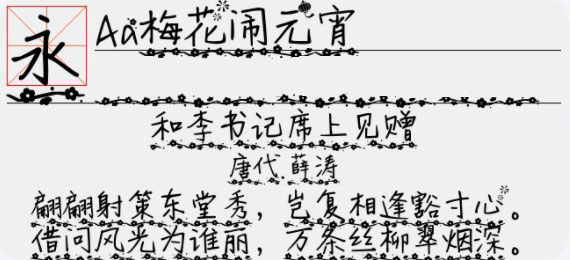 永
Aa梅花闹元宵
和李书记席上见赠
唐代.薛涛
翩翩射策东堂秀，岂复相逢豁寸心。
借问风光为谁丽，万条丝柳翠烟深。